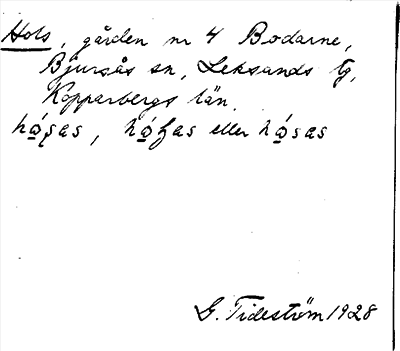 Hols, gården nr 4 Bodarne,
Bjursås sn, Leksands tg,
Kopparbergs län.
eller
G. Tideström 1928